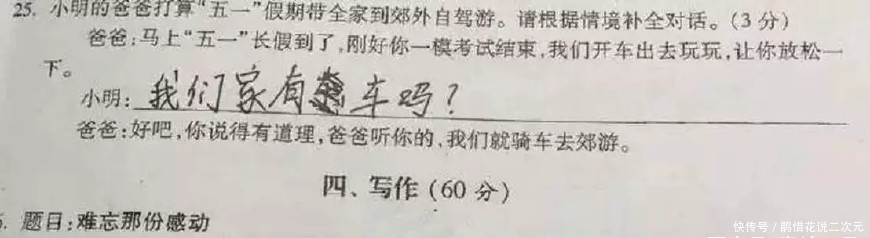 25. 小明的爸爸打算“五一”假期带全家到郊外自驾游。请根据情境补全对话。(3 分)
爸爸:马上“五一”长假到了,刚好你一模考试结束,我们开车出去玩玩,让你放松一
下。
小明:我们家有车吗?
爸爸:好吧,你说得有道理,爸爸听你的,我们就骑车去郊游。
四、写作(60 分)
题目:难忘那份感动
快传号/鹊惜花说二次元